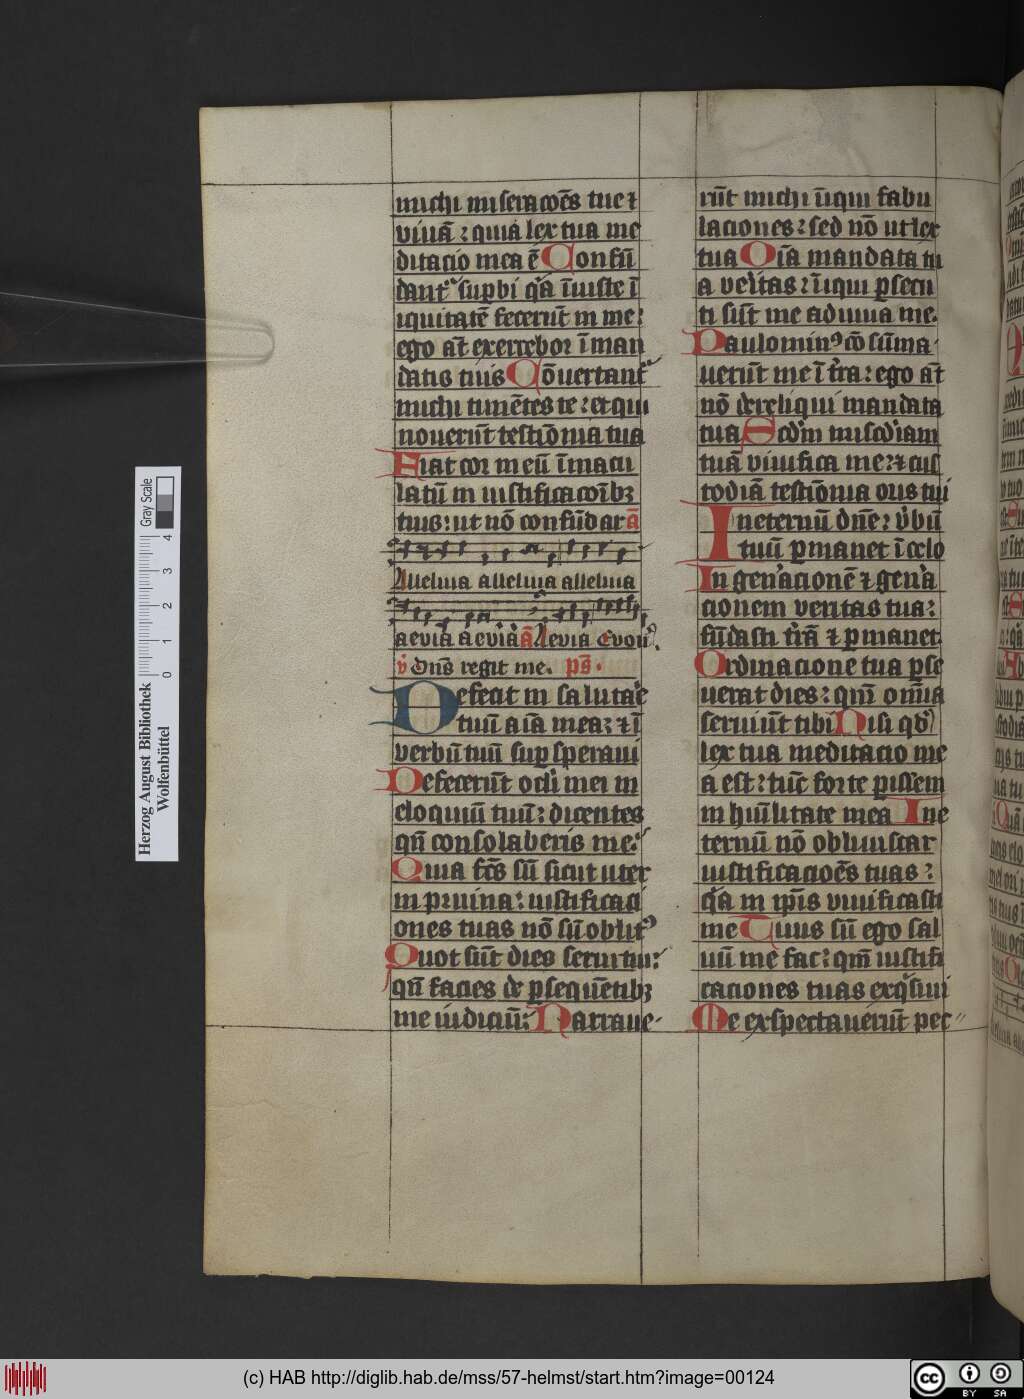 michi miseracōēs tue ⁊
viuā : quia lex tua me
ditacio mea ē Confū
dantᷣ supbi qͥa īiuste ī
iquitatē fecerūt in me :
ego aūt exercebor ī man
datis tuis Cōuertantᷣ
michi timētes te : et qui
nouerūt testiōnia tua
Fiat cor meū īmacu
latū in iustificacōībꝫ
tuis : ut nō confūdar ā
Alleluia alleluia alleluia
aevia aevia ā Aevia Evou
v Dn̄s regit me. ps̄.
Defecit in saluta͛e
tuū aīa mea : ⁊ ī
verbū tuū sup speraui
Defecerūt ocĺi mei in
eloquiū tuū : dicentes
qn̄ consolaberis me.
Quia fcs̄ sū sicut uter
in pruina : iustificaci
ones tuas nō sū oblitꝰ
Quot sūt dies serui tui :
qn̄ facies de ꝑsequētibꝫ
me iudiciū : Narraue
rūt michi īiqui fabu
laciones : sed nō ut lex
tua Oīa mandata tu
a ve͛itas : īiqui ꝑsecu
ti sūt me adiuua me.
Paulominꝰ cōsūma
uerūt me ī t͛ra : ego aūt
nō dereliqui mandata
tua Scdm̄ miscd͛iam
tuā viuifica me : ⁊ cus
todiā testiōnia oris tui
In eternū dn̄e : v͛bū
tuū ꝑmanet ī celo
In gen͛acionē ⁊ gen͛a
cionem veritas tua :
fūdasti t͛rā ⁊ ꝑmanet
Ordinacione tua ꝑse
uerat dies : qm̄ omīa
seruiūt tibi Nisi qd͛
lex tua meditacio me
a est : tūc forte ꝑissem
in huīlitate mea In e
ternū nō obliuiscar
iustificacioēs tuas :
qͥa in ip̄is viuificasti
me Tuus sū ego sal
uū me fac : qm̄ iustifi
caciones tuas exqͥsiui
Me exspectauerūt pec
Herzog August Bibliothek
Wolfenbüttel
0 1 2 3 4
Gray Scale
(c) HAB http://diglib.hab.de/mss/57-helmst/start.htm?image=00124
cc BY SA